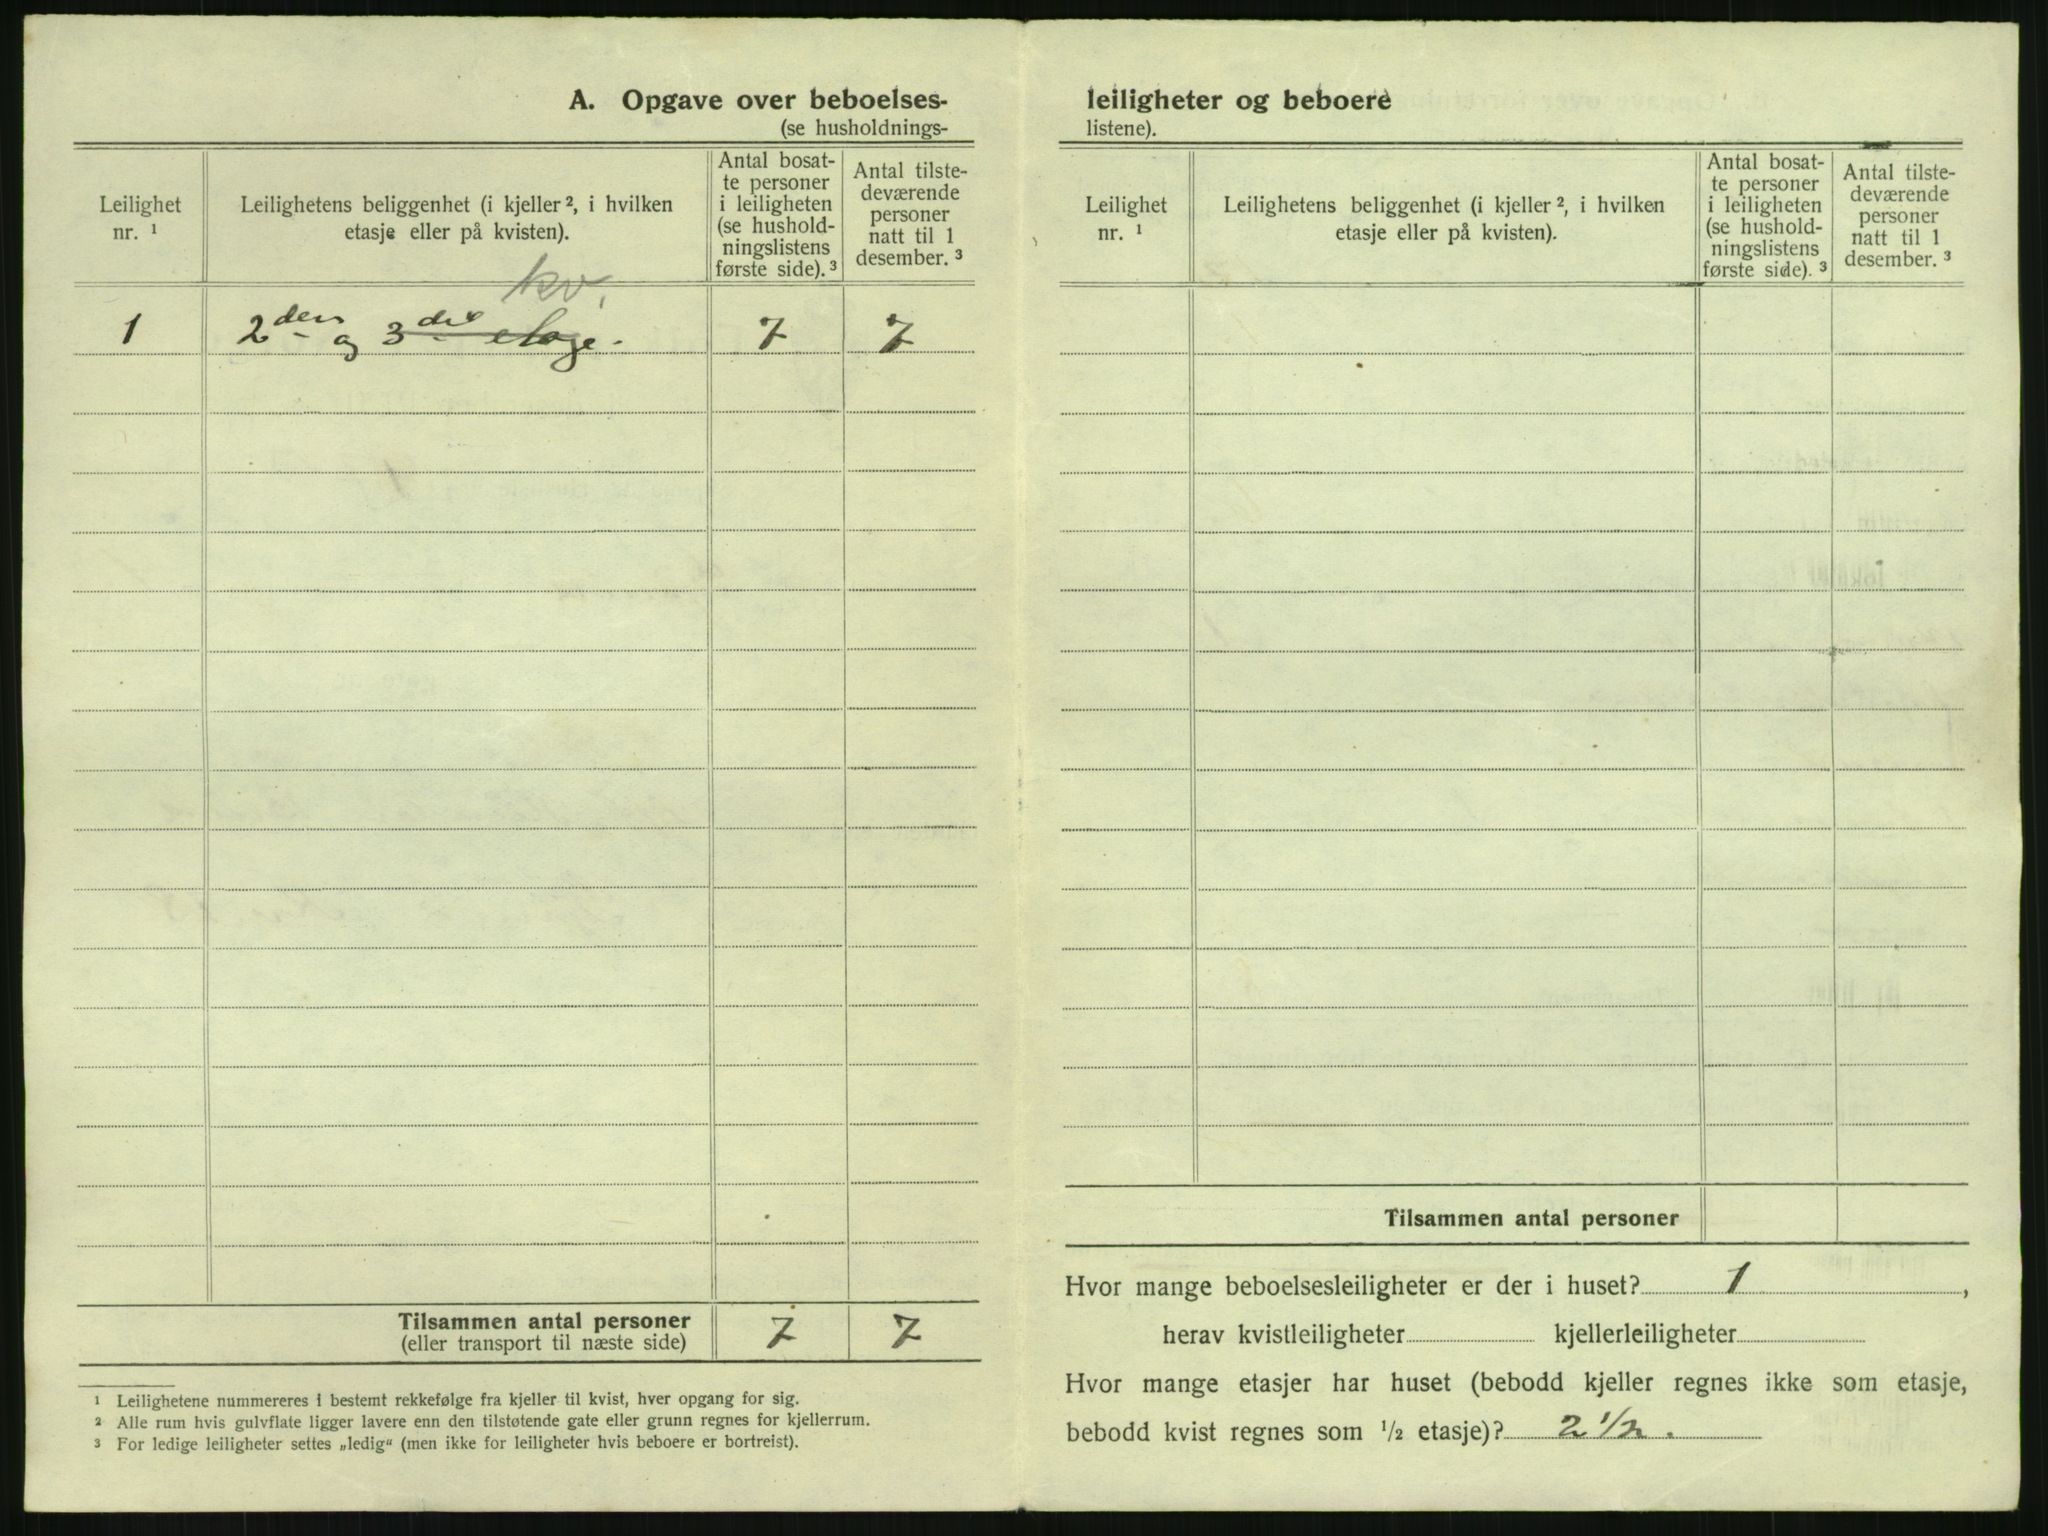 A. Opgave over beboelses-
(se husholdnings-
Leilighet
nr. ¹
Leilighetens beliggenhet (i kjeller ², i hvilken
etasje eller på kvisten).
Antal bosat-
te personer
i leiligheten
(se hushold-
ningslistens
første side). ³
Antal tilste-
deværende
personer
natt til 1
desember. ³
kv.
1 2den og 3die etage. 7 7
Tilsammen antal personer 7 7
(eller transport til næste side)
¹ Leilighetene nummereres i bestemt rekkefølge fra kjeller til kvist, hver opgang for sig.
² Alle rum hvis gulvflate ligger lavere enn den tilstøtende gate eller grunn regnes for kjellerrum.
³ For ledige leiligheter settes „ledig“ (men ikke for leiligheter hvis beboere er bortreist).
leiligheter og beboere
listene).
Leilighet
nr. ¹
Leilighetens beliggenhet (i kjeller ², i hvilken
etasje eller på kvisten).
Antal bosat-
te personer
i leiligheten
(se hushold-
ningslistens
første side). ³
Antal tilste-
deværende
personer
natt til 1
desember. ³
Tilsammen antal personer
Hvor mange beboelsesleiligheter er der i huset? 1 ,
herav kvistleiligheter kjellerleiligheter
Hvor mange etasjer har huset (bebodd kjeller regnes ikke som etasje,
bebodd kvist regnes som ½ etasje)? 2 ½.